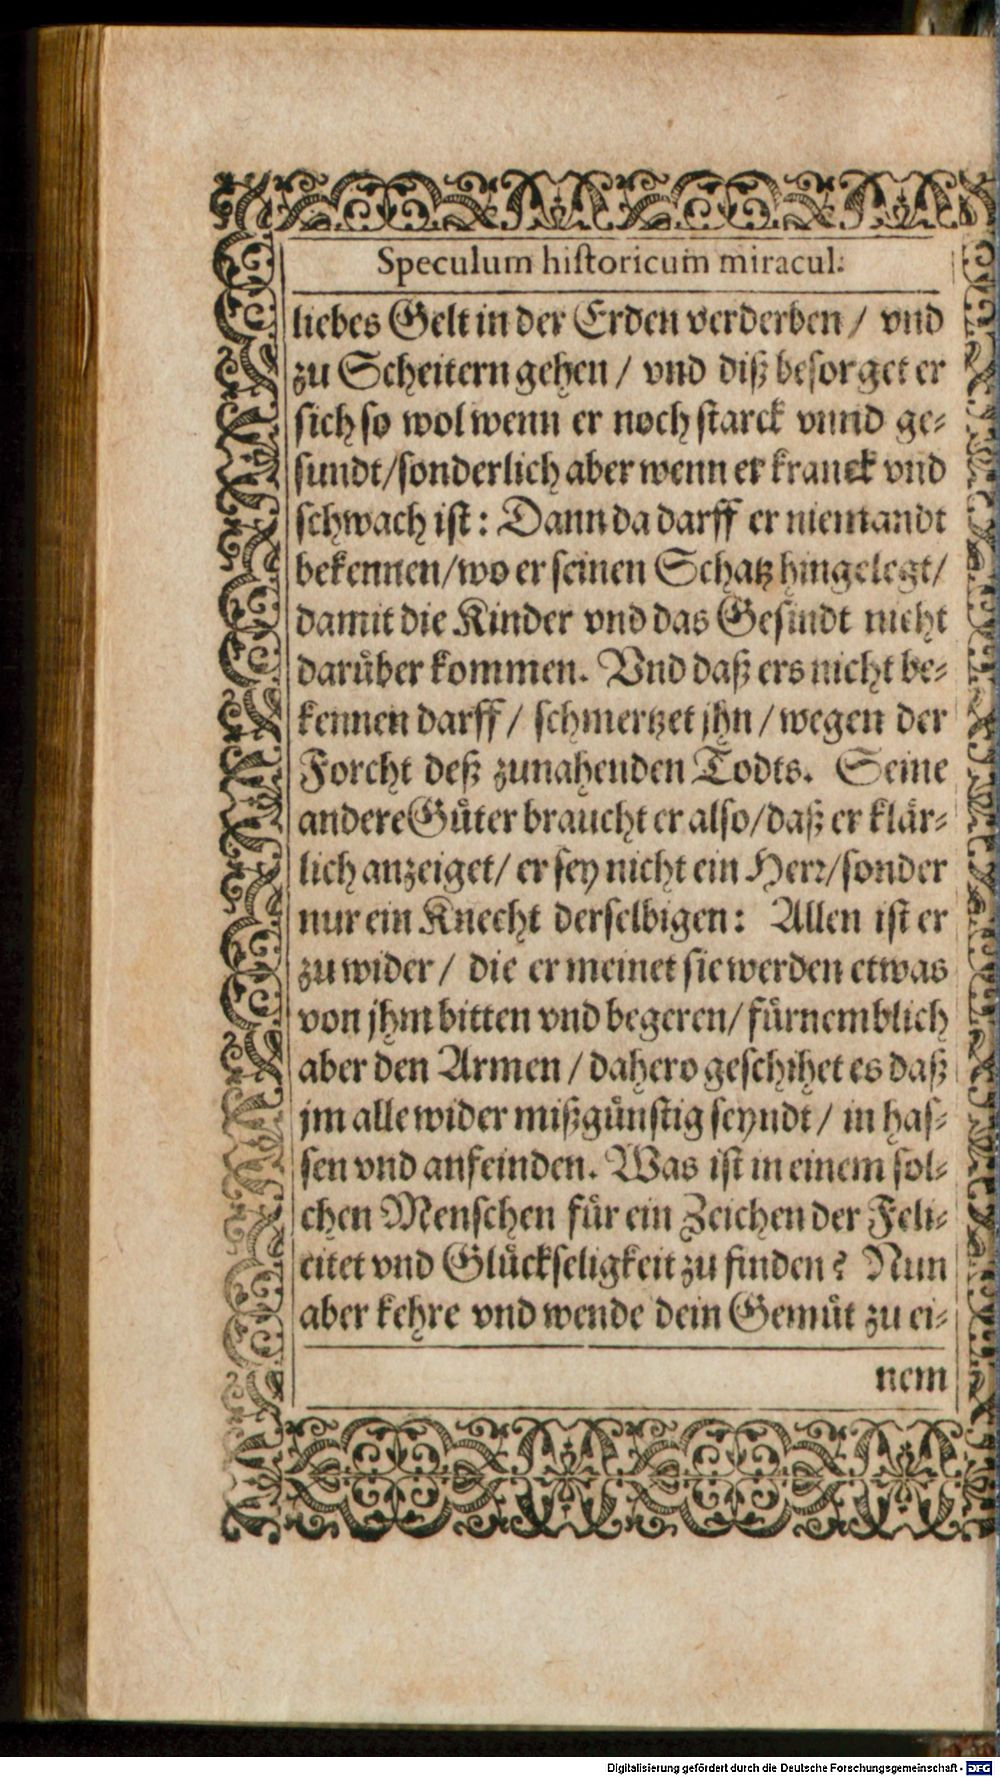 Speculum historicum miracul:
liebes Gelt in der Erden verderben / vnd
zu Scheitern gehen / vnd diß besorget er
sich so wol wenn er noch starck vnnd ge-
sundt/sonderlich aber wenn er kranck vnd
schwach ist: Dann da darff er niemandt
bekennen/wo er seinen Schatz hingelegt/
damit die Kinder vnd das Gesindt nicht
darüber kommen. Vnd daß ers nicht be-
kennen darff / schmertzet jhn / wegen der
Forcht deß zunahenden Todts. Seine
andere Güter braucht er also/daß er klär-
lich anzeiget/ er sey nicht ein Herr/sonder
nur ein Knecht derselbigen: Allen ist er
zu wider / die er meinet sie werden etwas
von jhm bitten vnd begeren/ fürnemblich
aber den Armen / dahero geschihet es daß
jm alle wider mißgünstig seyndt / in has-
sen vnd anfeinden. Was ist in einem sol-
chen Menschen für ein Zeichen der Feli-
citet vnd Glückseligkeit zu finden? Nun
aber kehre vnd wende dein Gemüt zu ei-
nem
Digitalisierung gefördert durch die Deutsche Forschungsgemeinschaft - DFG